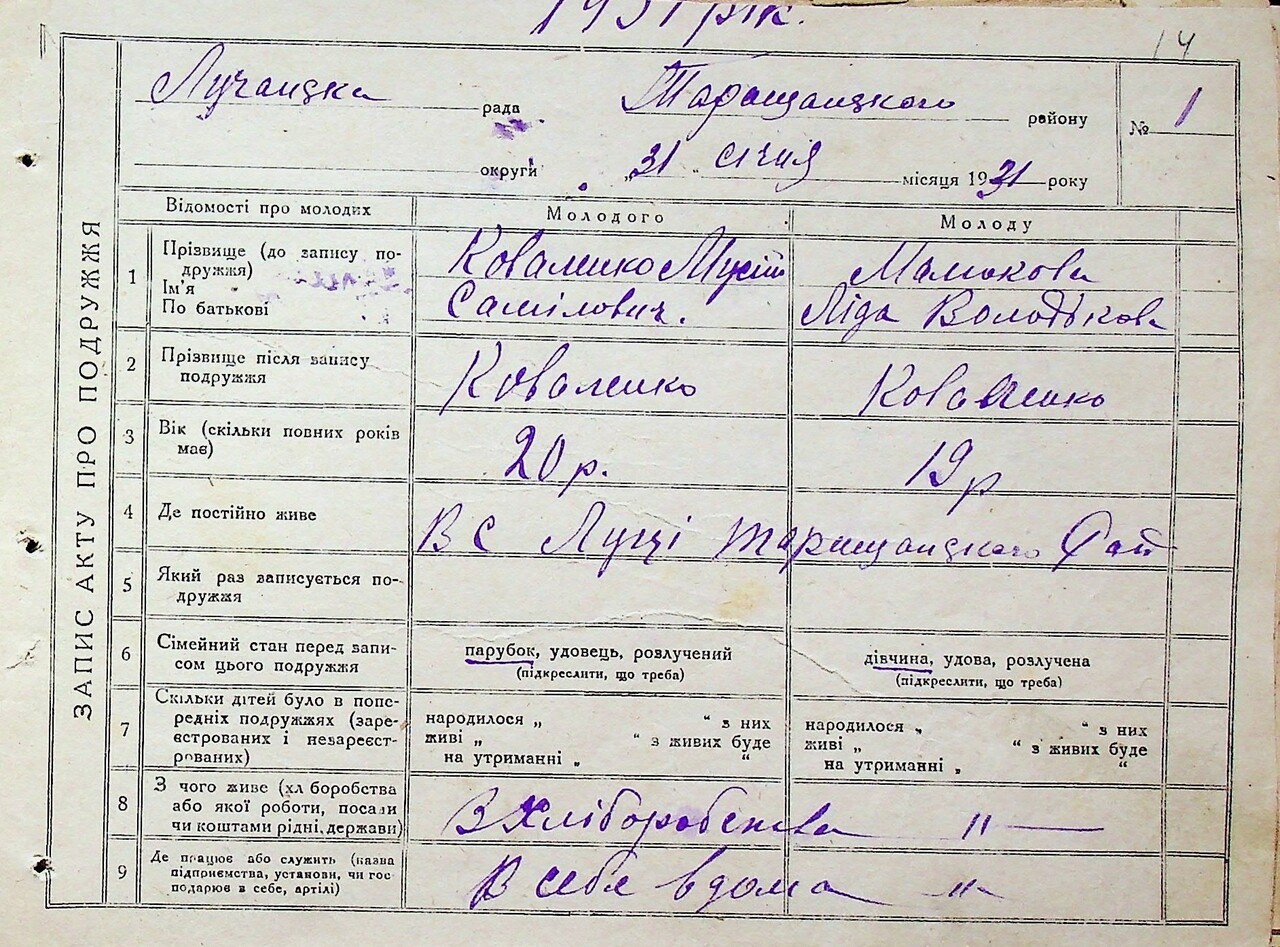 1931 рік.
14
Лучанська рада Таращанського району № 1
округи „31 січня місяця 1931 року
ЗАПИС АКТУ ПРО ПОДРУЖЖЯ
Відомості про молодих Молодого Молоду
1 Прізвище (до запису по-
дружжя)
Ім'я
По батькові
Коваленко Мусій
Самілович.
Малюкова
Ліда Володькова
2 Прізвище після запису
подружжя
Коваленко Коваленко
3 Вік (скільки повних років
має)
20 р. 19 р
4 Де постійно живе
В С Лучці Таращанського Рай
5 Який раз записується по-
дружжя
6 Сімейний стан перед запи-
сом цього подружжя
парубок, удовець, розлучений
(підкреслити, що треба)
дівчина, удова, розлучена
(підкреслити, що треба)
7 Скільки дітей було в попе-
редніх подружжях (заре-
єстрованих і незареєст-
рованих)
народилося „ “ з них
живі „ “ з живих буде
на утриманні „ “
народилося „ “ з них
живі „ “ з живих буде
на утриманні „ “
8 З чого живе (хліборобства
або якої роботи, посади
чи коштами рідні, держави)
З Хліборобства —〃—
9 Де працює або служить (назва
підприємства, установи, чи гос-
подарює в себе, артілі)
В себе вдома —〃—